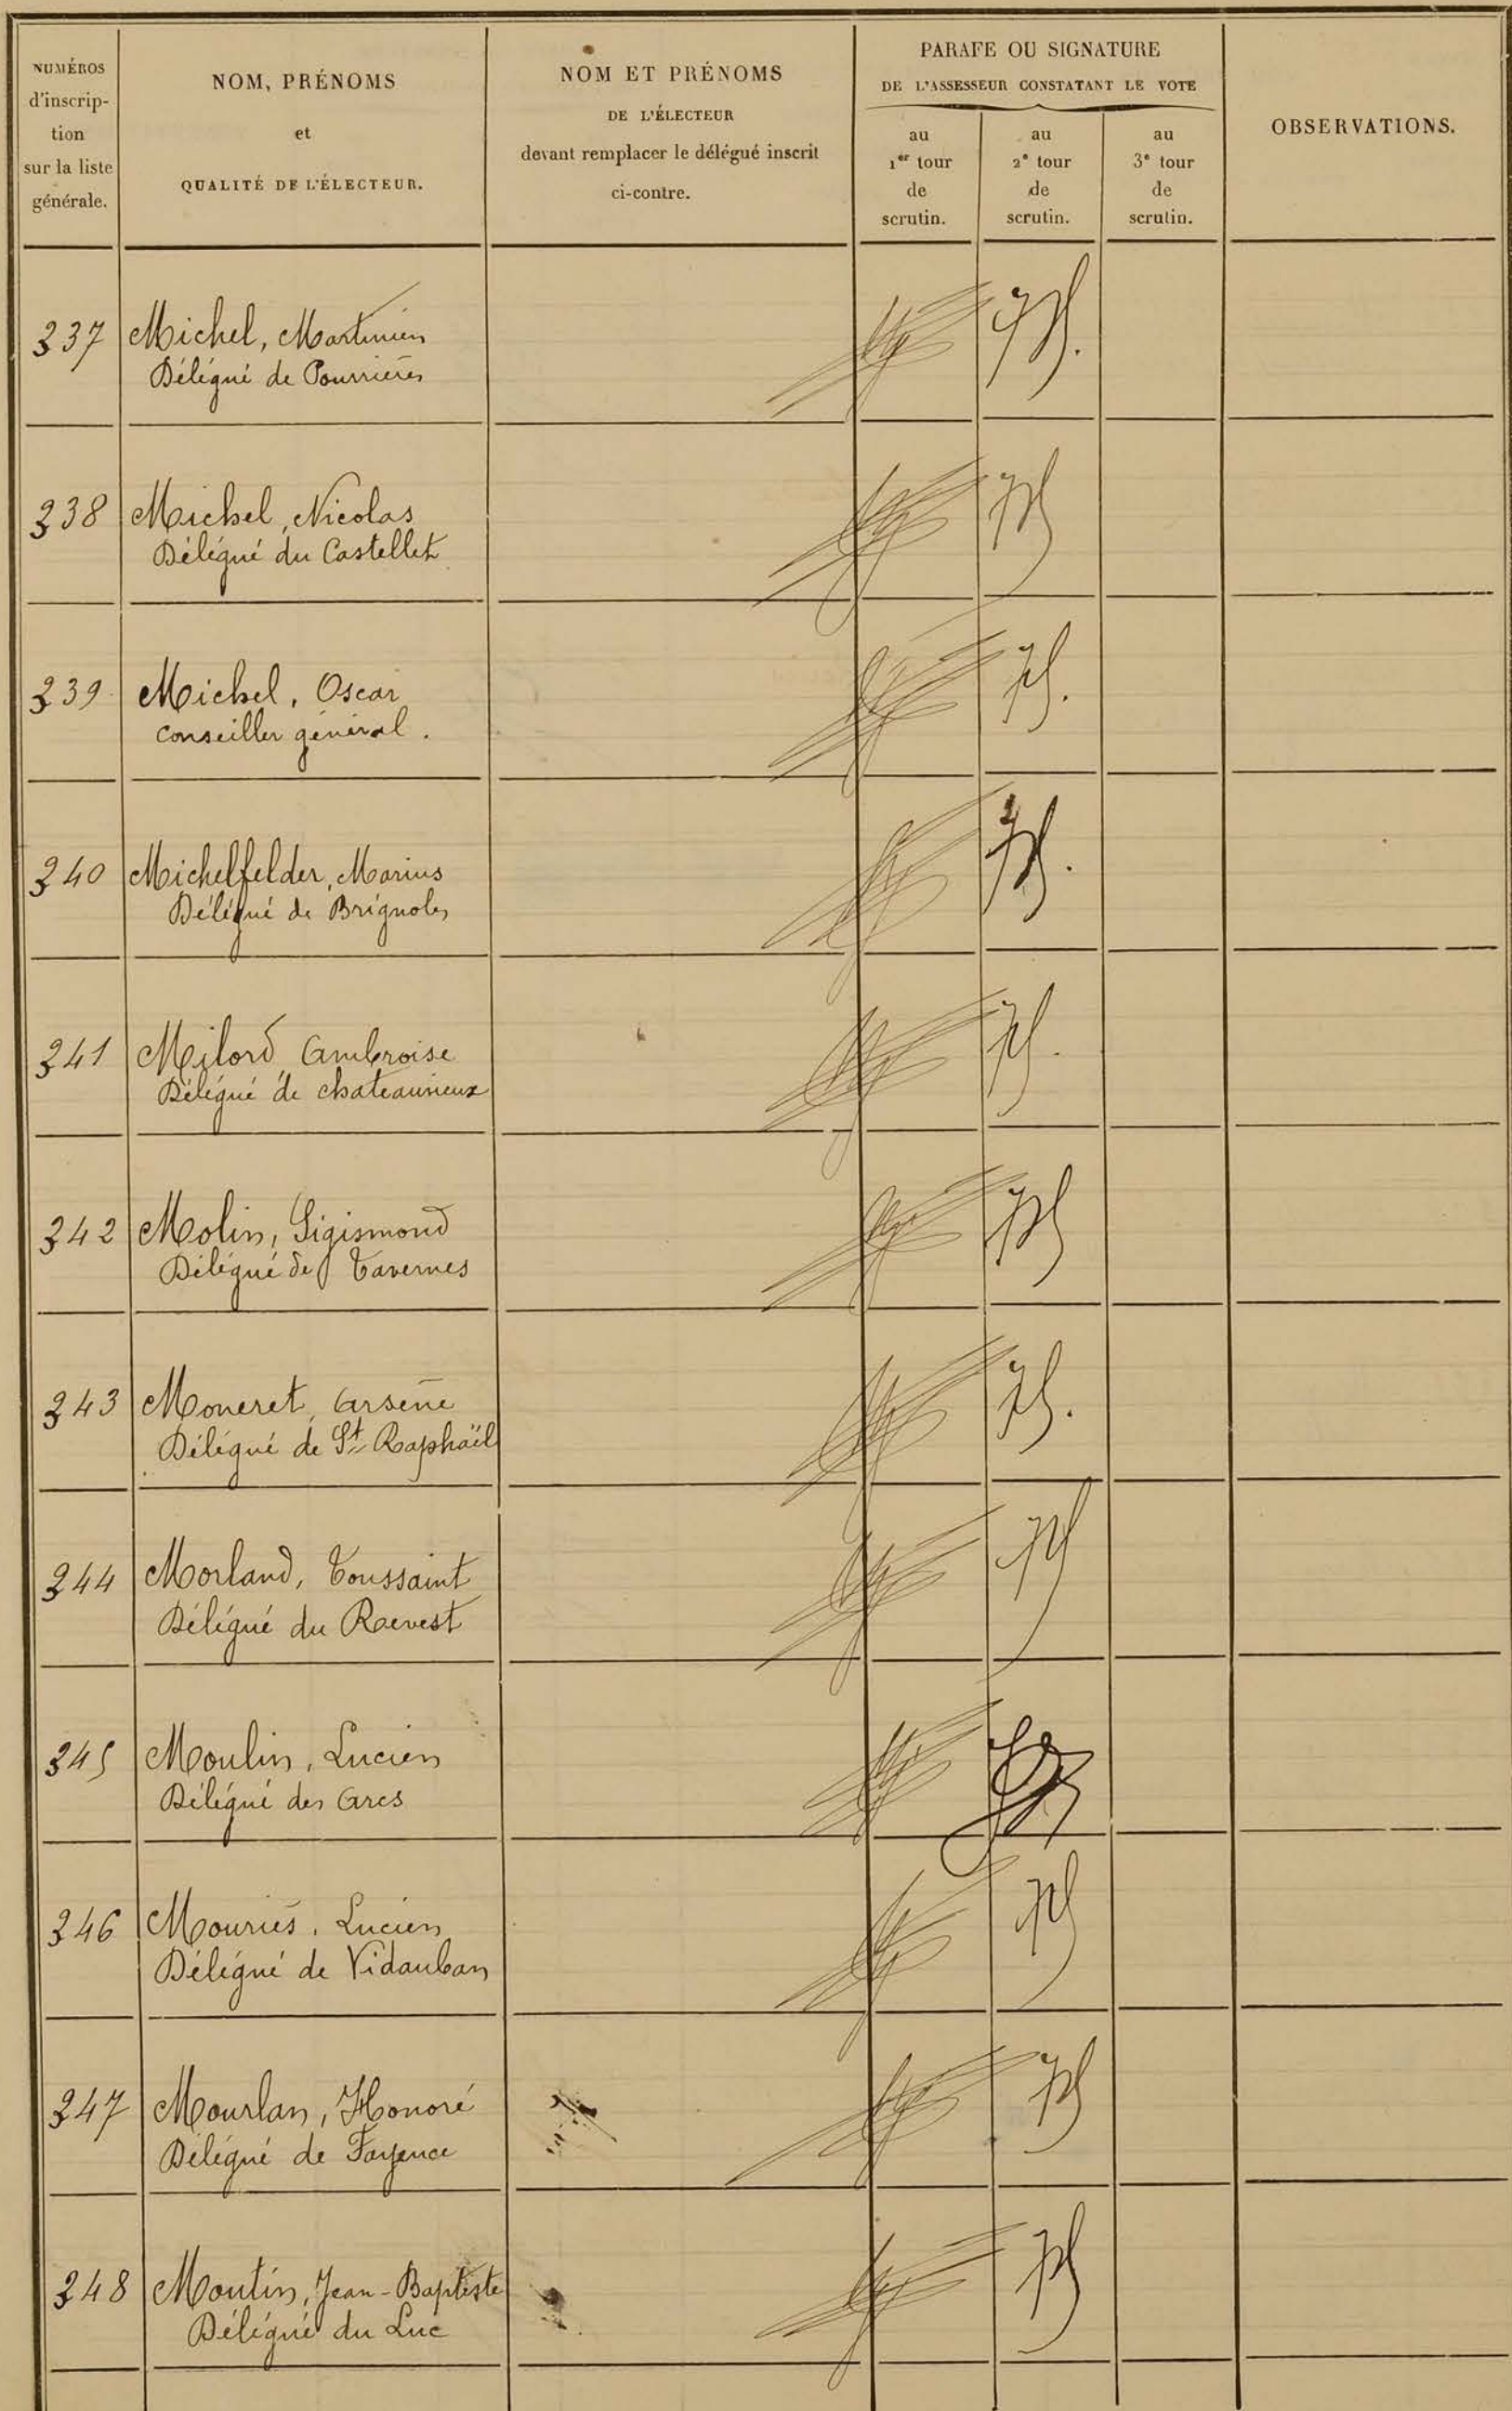 NUMÉROS
d'inscrip-
tion
sur la liste
générale.
NOM, PRÉNOMS
et
QUALITÉ DE L'ÉLECTEUR.
NOM ET PRÉNOMS
DE L'ÉLECTEUR
devant remplacer le délégué inscrit
ci-contre.
PARAFE OU SIGNATURE
DE L'ASSESSEUR CONSTATANT LE VOTE
au
1er tour
de
scrutin.
au
2e tour
de
scrutin.
au
3e tour
de
scrutin.
OBSERVATIONS.
237 Michel, Martinien
Délégué de Pourrières
238 Michel, Nicolas
Délégué du Castellet
239 Michel, Oscar
Conseiller général.
240 Michelfelder, Marius
Délégué de Brignoles
241 Milord, Ambroise
Délégué de Chateauvieux
242 Molin, Sigismond
Délégué de Tavernes
243 Moneret, Arsène
Délégué de St Raphaël
244 Morland, Toussaint
Délégué du Revest
245 Moulin, Lucien
Délégué des Arcs
246 Mouriès, Lucien
Délégué de Vidauban
247 Mourlan, Honoré
Délégué de Fayence
248 Moutin, Jean-Baptiste
Délégué du Luc